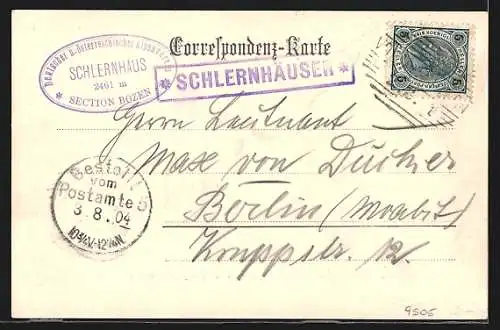 Deutscher u. Österreichischer Alpenverein
SCHLERNHAUS
2461 m
* SECTION BOZEN *
Correspondenz-Karte
* SCHLERNHÄUSER *
5 5
5 5
Herrn Lieutenant
Max von
Berlin (Moabit)
Kruppstr. 12.
Bestellt
vom
Postamte 5
3. 8. 04
9505